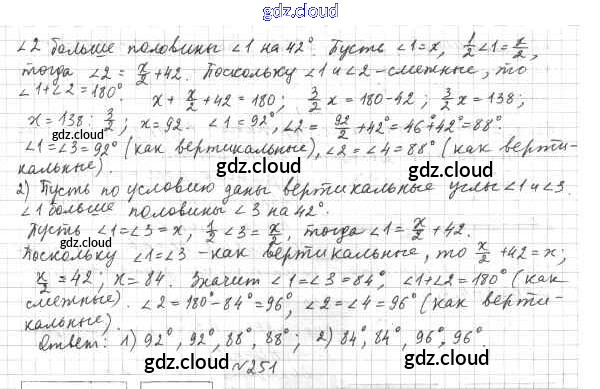 gdz.cloud
∠2 больше половины ∠1 на 42°. Пусть ∠1=x, 1/2∠1=x/2,
тогда ∠2 = x/2+42. Поскольку ∠1 и ∠2-смежные, то
∠1+∠2=180°. x+x/2+42=180, 3/2x=180-42; 3/2x=138;
x=138:3/2; x=92. ∠1=92°, ∠2=92/2+42°=46°+42°=88°.
gdz.cloud gdz.cloud
∠1=∠3=92° (как вертикальные), ∠2=∠4=88° (как верти-
кальные). gdz.cloud
2) Пусть по условию даны вертикальные углы ∠1 и ∠3.
∠1 больше половины ∠3 на 42°.
gdz.cloud gdz.cloud
Пусть ∠1=∠3=x, 1/2∠3=x/2, тогда ∠1=x/2+42.
Поскольку ∠1=∠3-как вертикальные, то x/2+42=x;
x/2=42; x=84. Значит ∠1=∠3=84°, ∠1+∠2=180° (как
gdz.cloud gdz.cloud
смежные). ∠2=180°-84°=96°, ∠2=∠4=96° (как верти-
кальные).
Ответ: 1) 92°, 92°, 88°, 88°; 2) 84°, 84°, 96°, 96°.
gdz.cloud gdz.cloud
№251
gdz.cloud